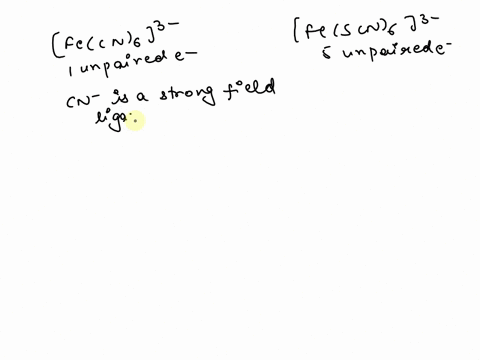 [Fe(CN)6]3-
1 unpaired e-
[Fe(SCN)6]3-
5 unpaired e-
CN- is a strong field
liga